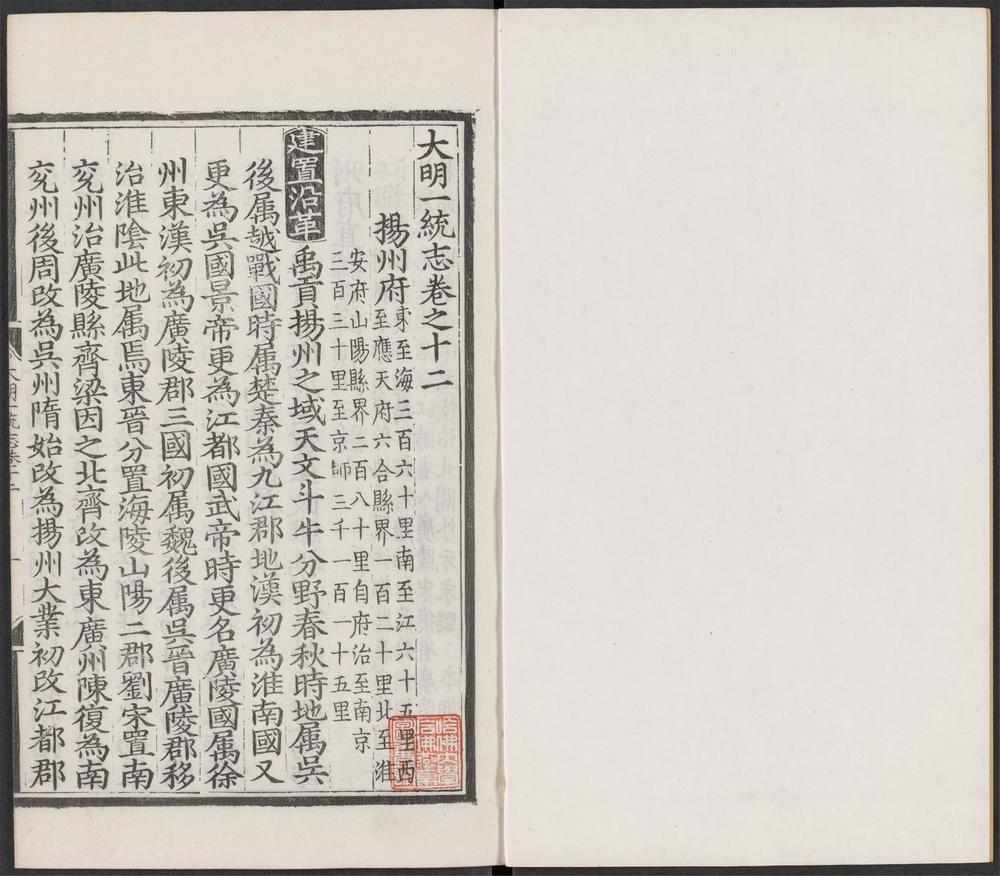 大明一統志卷之十二
揚州府東至海三百六十里南至江六十五里西
至應天府六合縣界一百二十里北至淮
安府山陽縣界二百八十里自府治至南京
三百三十里至京師三千一百一十五里
建置沿革禹貢揚州之域天文斗牛分野春秋時地属吳
後属越戰國時属楚秦為九江郡地漢初為淮南國又
更為吳國景帝更為江都國武帝時更名廣陵國属徐
州東漢初為廣陵郡三國初属魏後属吳晉廣陵郡移
治淮陰此地属焉東晉分置海陵山陽二郡劉宋置南
兖州治廣陵縣齊梁因之北齊改為東廣州陳復為南
兖州後周改為吳州隋始改為揚州大業初改江都郡
大明一統志卷十二
一